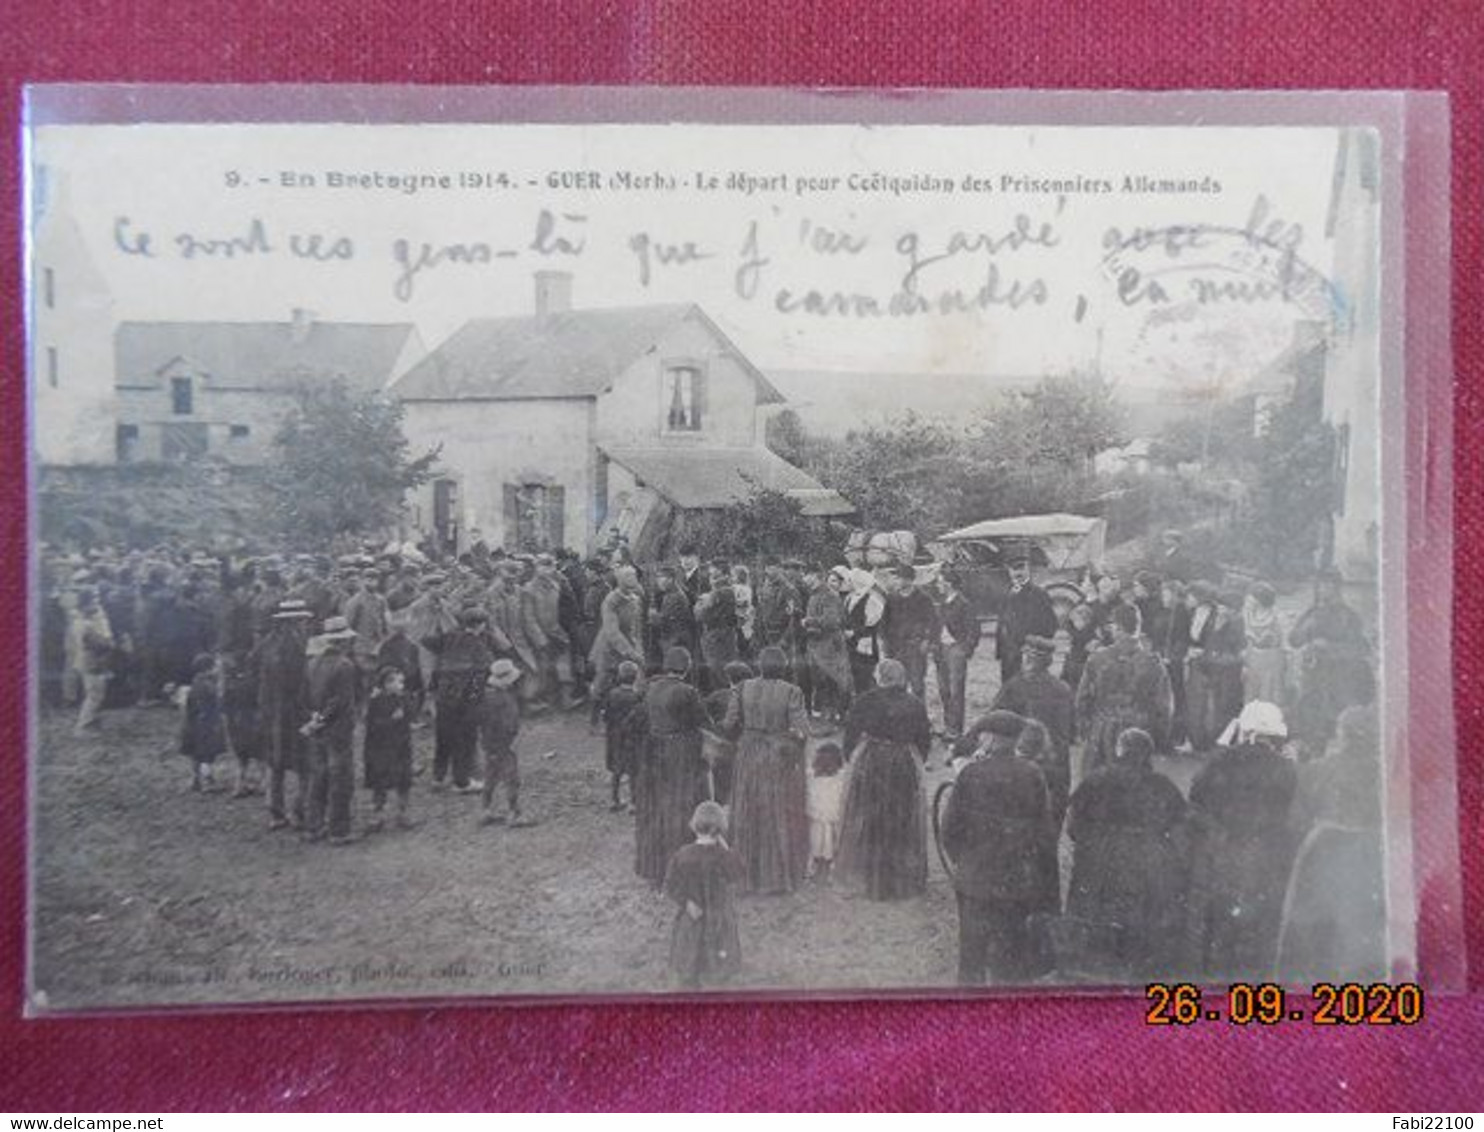 9. - En Bretagne 1914. - GUER (Morh.) - Le départ pour Coëtquidan des Prisonniers Allemands
Ce sont ces gens-là que j'ai gardé avec les
camarades, la nuit
photo. édit. Guer
26.09.2020
delcampe.net
Fabi22100